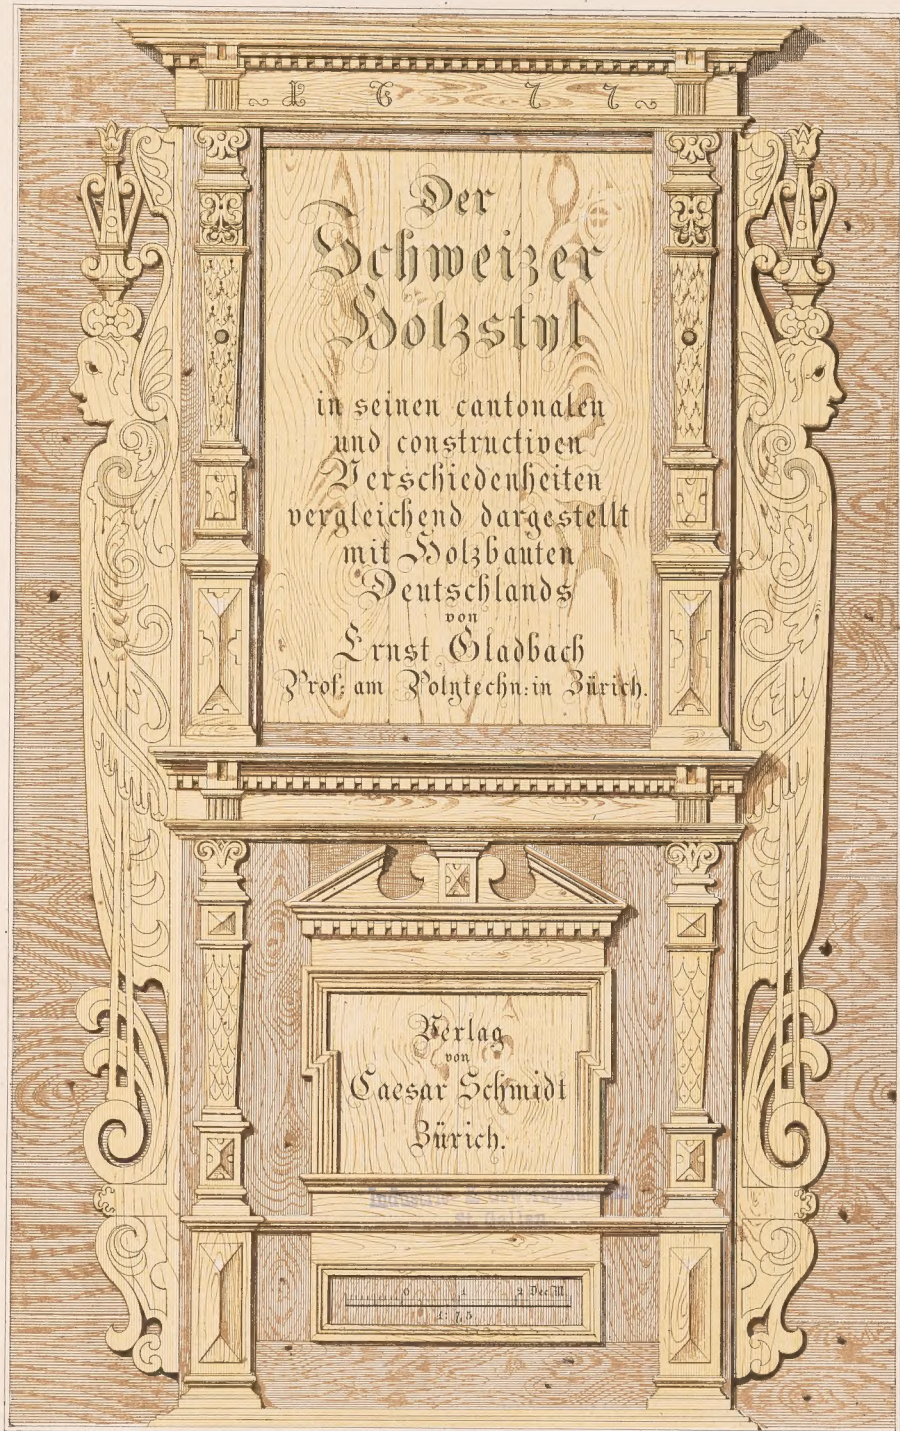 1677
Der
Schweizer
Holzstyl
in seinen cantonalen
und constructiven
Verschiedenheiten
vergleichend dargestellt
mit Holzbauten
Deutschlands
von
Ernst Gladbach
Prof: am Polytechn: in Zürich.
Verlag
von
Caesar Schmidt
Zürich.
St. Gallen
0 1 2 Dec. M.
1: 7,5